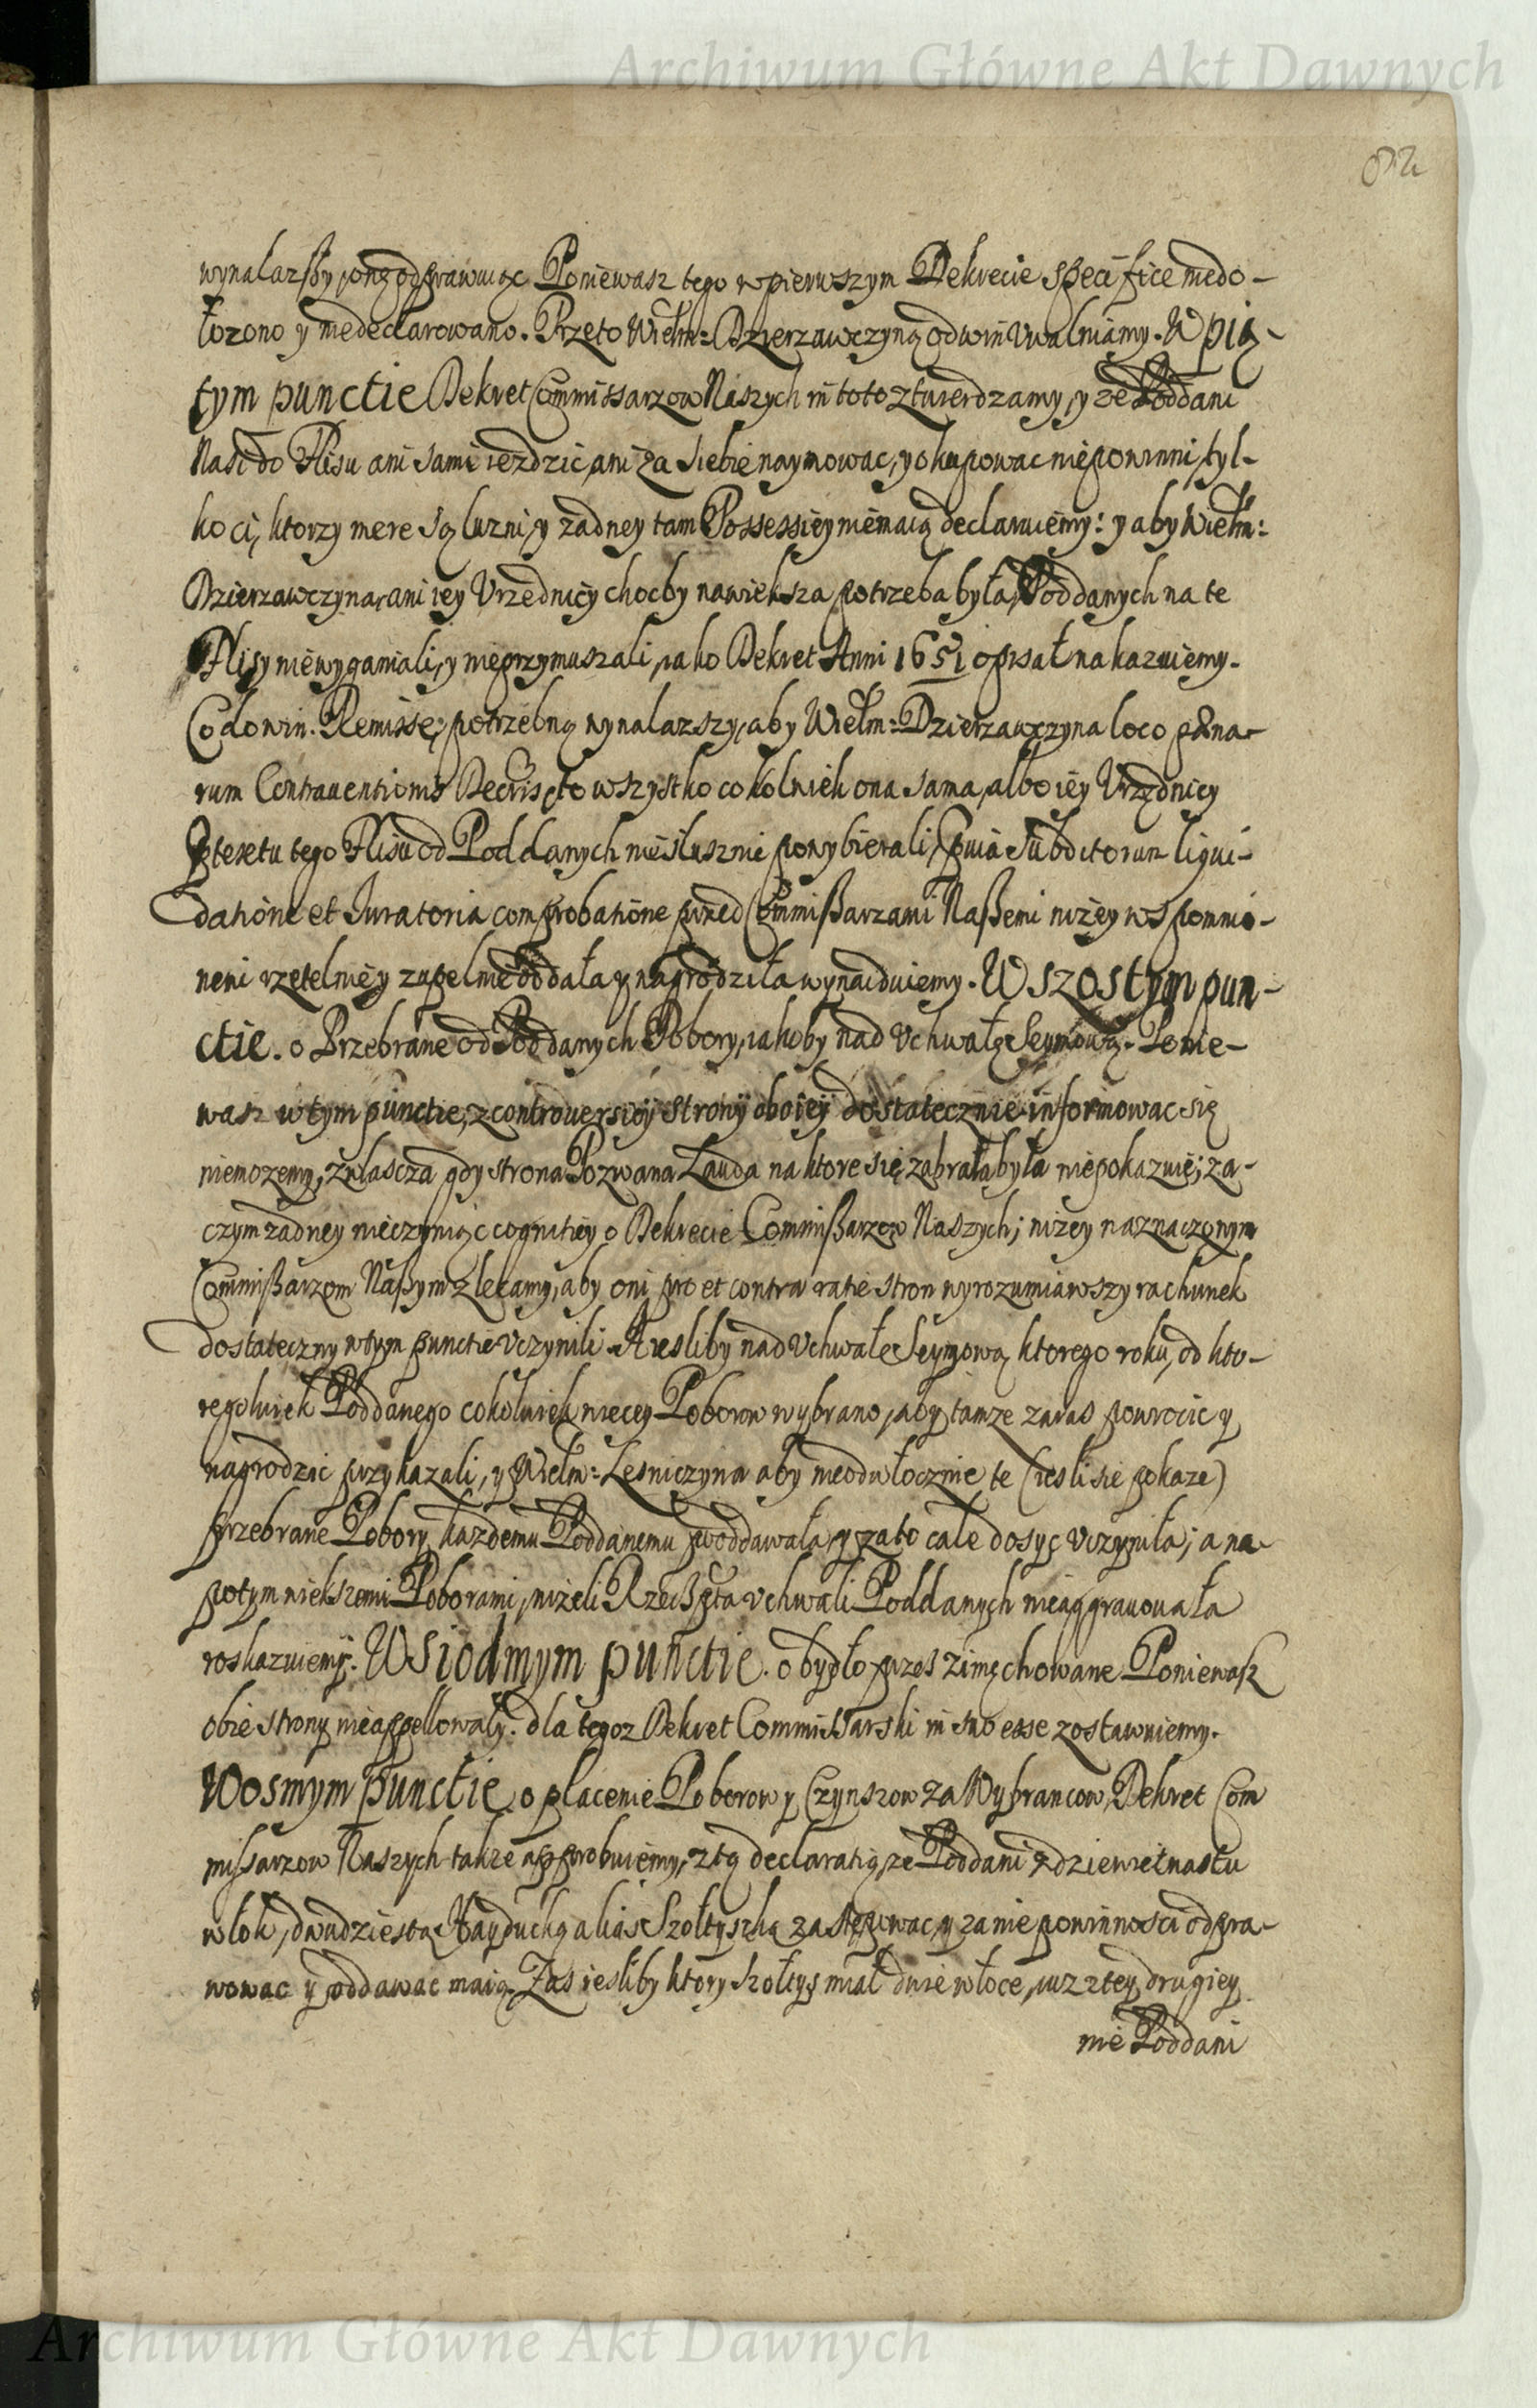 Archiwum Główne Akt Dawnych
82
wynalazßy, onę odprawuiąc Poniewasz tego w pierwszym Dekrecie specifice niedo-
łozono y niedeclarowano. Przeto Wielm: Dzierzawczynę od win Vwalniamy. W pią-
tym punctie Dekret Commissarzow Naszych in toto ztwierdzamy, y ze Poddani
Nasi do Flisu ani sami iezdzic, ani za siebie naymowac, y okupowac niepowinni, tyl-
ko ci, ktorzy mere są luzni, y zadney tam Possessiey niemaią declaruiemy: y aby Wielm:
Dzierzawczyna, ani iey Vrzędnicy chocby nawieksza potrzeba była, Poddanych na te
Flisy niewyganiali, y nieprzymuszali, iako Dekret Anni 1651 opisał nakazuiemy.
Co do win. Remissę potrzebną wynalazszy, aby Wielm: Dzierzawczyna loco pœna-
rum Contraventionis Decreti, to wszystko cokolwiek ona sama, albo iey Vrzędnicy
prætextu tego Flisu od Poddanych niesłusznie powybierali, prævia Subditorum liqui-
datione et Iuratoria comprobatione przed Commißarzami Naßemi nizey wspomnio-
neni rzetelnie y zupelnie oddała y nagrodziła wynaiduiemy. W szostym pun-
ctie. o Przebrane od Poddanych Pobory, iakoby nad Vchwałę Seymową. Ponie-
wasz w tym punctie, z controversiey strony oboiey dostatecznie informowac się
niemozemy, zwłascza gdy strona Pozwana Lauda na ktore się zabrała była niepokazuie; za-
czym zadney nieczyniąc cognitiey o Dekrecie Commißarzow Naszych; nizey naznaczonym
Commißarzom Naßym zlecamy, aby oni pro et contra ratie stron wyrozumiawszy rachunek
dostateczny w tym punctie Vczynili. A iesliby nad Vchwałę Seymową ktorego roku, od kto-
regolwiek Poddanego cokolwiek wiecey Poborow wybrano, aby tamze zaras powrocic y
nagrodzic przykazali, y Wielm: Lesniczyna aby nieodwłocznie te (iesli sie pokaze)
przebrane Pobory kazdemu Poddanemu pooddawała, y za to cale dosyc Vczyniła; a na-
potym wiekszemi Poborami, nizeli Rzeczpta Vchwali Poddanych nieaggravovała
roskazuiemy. W Siodmym punctie. o bydło przes zimę chowane Poniewasz
obie strony nieappellowały. dla tegoz Dekret Commissarski in suo esse zostawuiemy.
W osmym punctie o płacenie Poborow y Czynszow za Wybrancow, Dekret Com
missarzow Naszych takze approbuiemy, z tą declaratią, ze Poddani z dziewietnastu
włok, dwudziestą Hayduchą alias Szołtyską zastępowac, y zanie powinnosci odpra-
wowac y oddawac maią. Zas iesliby ktory szołtys miał dwie włoce, iuz z tey drugiey
nie Poddani
Archiwum Główne Akt Dawnych